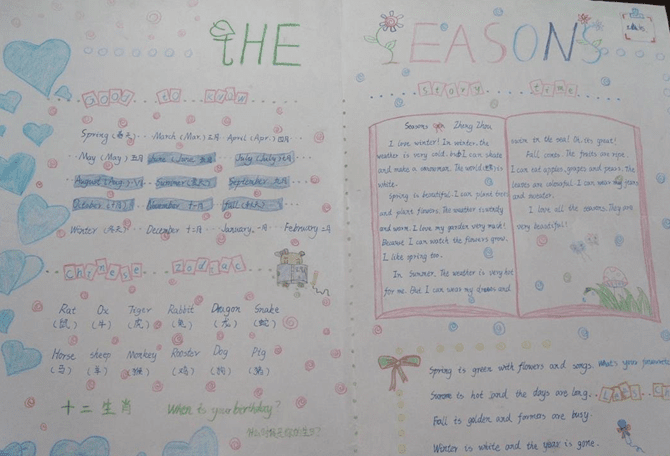 THE SEASONS
good to know
Spring (春天) March (Mar.) 三月 April (Apr.) 四月
May (May) 五月 June (June 六月) July (July) 七月
August (Aug.) 八月 Summer (夏天) September 九月
October 十月 November 十一月 fall (秋天)
Winter (冬天) December 十二月 January 一月 February 二月
chinese zodiac
Rat Ox Tiger Rabbit Dragon Snake
(鼠) (牛) (虎) (兔) (龙) (蛇)
Horse sheep Monkey Rooster Dog Pig
(马) (羊) (猴) (鸡) (狗) (猪)
十二生肖 When is your birthday?
story time
Seasons Zhang Zhan
I love winter! In winter, the
weather is very cold. But I can skate
and make a snowman. The world is in
white.
Spring is beautiful. I can plant trees
and plant flowers. The weather is windy
and warm. I love my garden very much!
Because I can watch the flowers grow.
I like spring too.
In Summer. The weather is very hot
for me. But I can wear my dresses and
swim in the sea! Oh, its great!
Fall comes. The fruits are ripe.
I can eat apples, grapes and pears. The
leaves are colourful. I can wear my jeans
and sweater.
I love all the seasons. They are
very beautiful!
Spring is green with flowers and songs. What's your favourite
Summer is hot and the days are long.
Fall is golden and farmers are busy.
Winter is white and the year is gone.